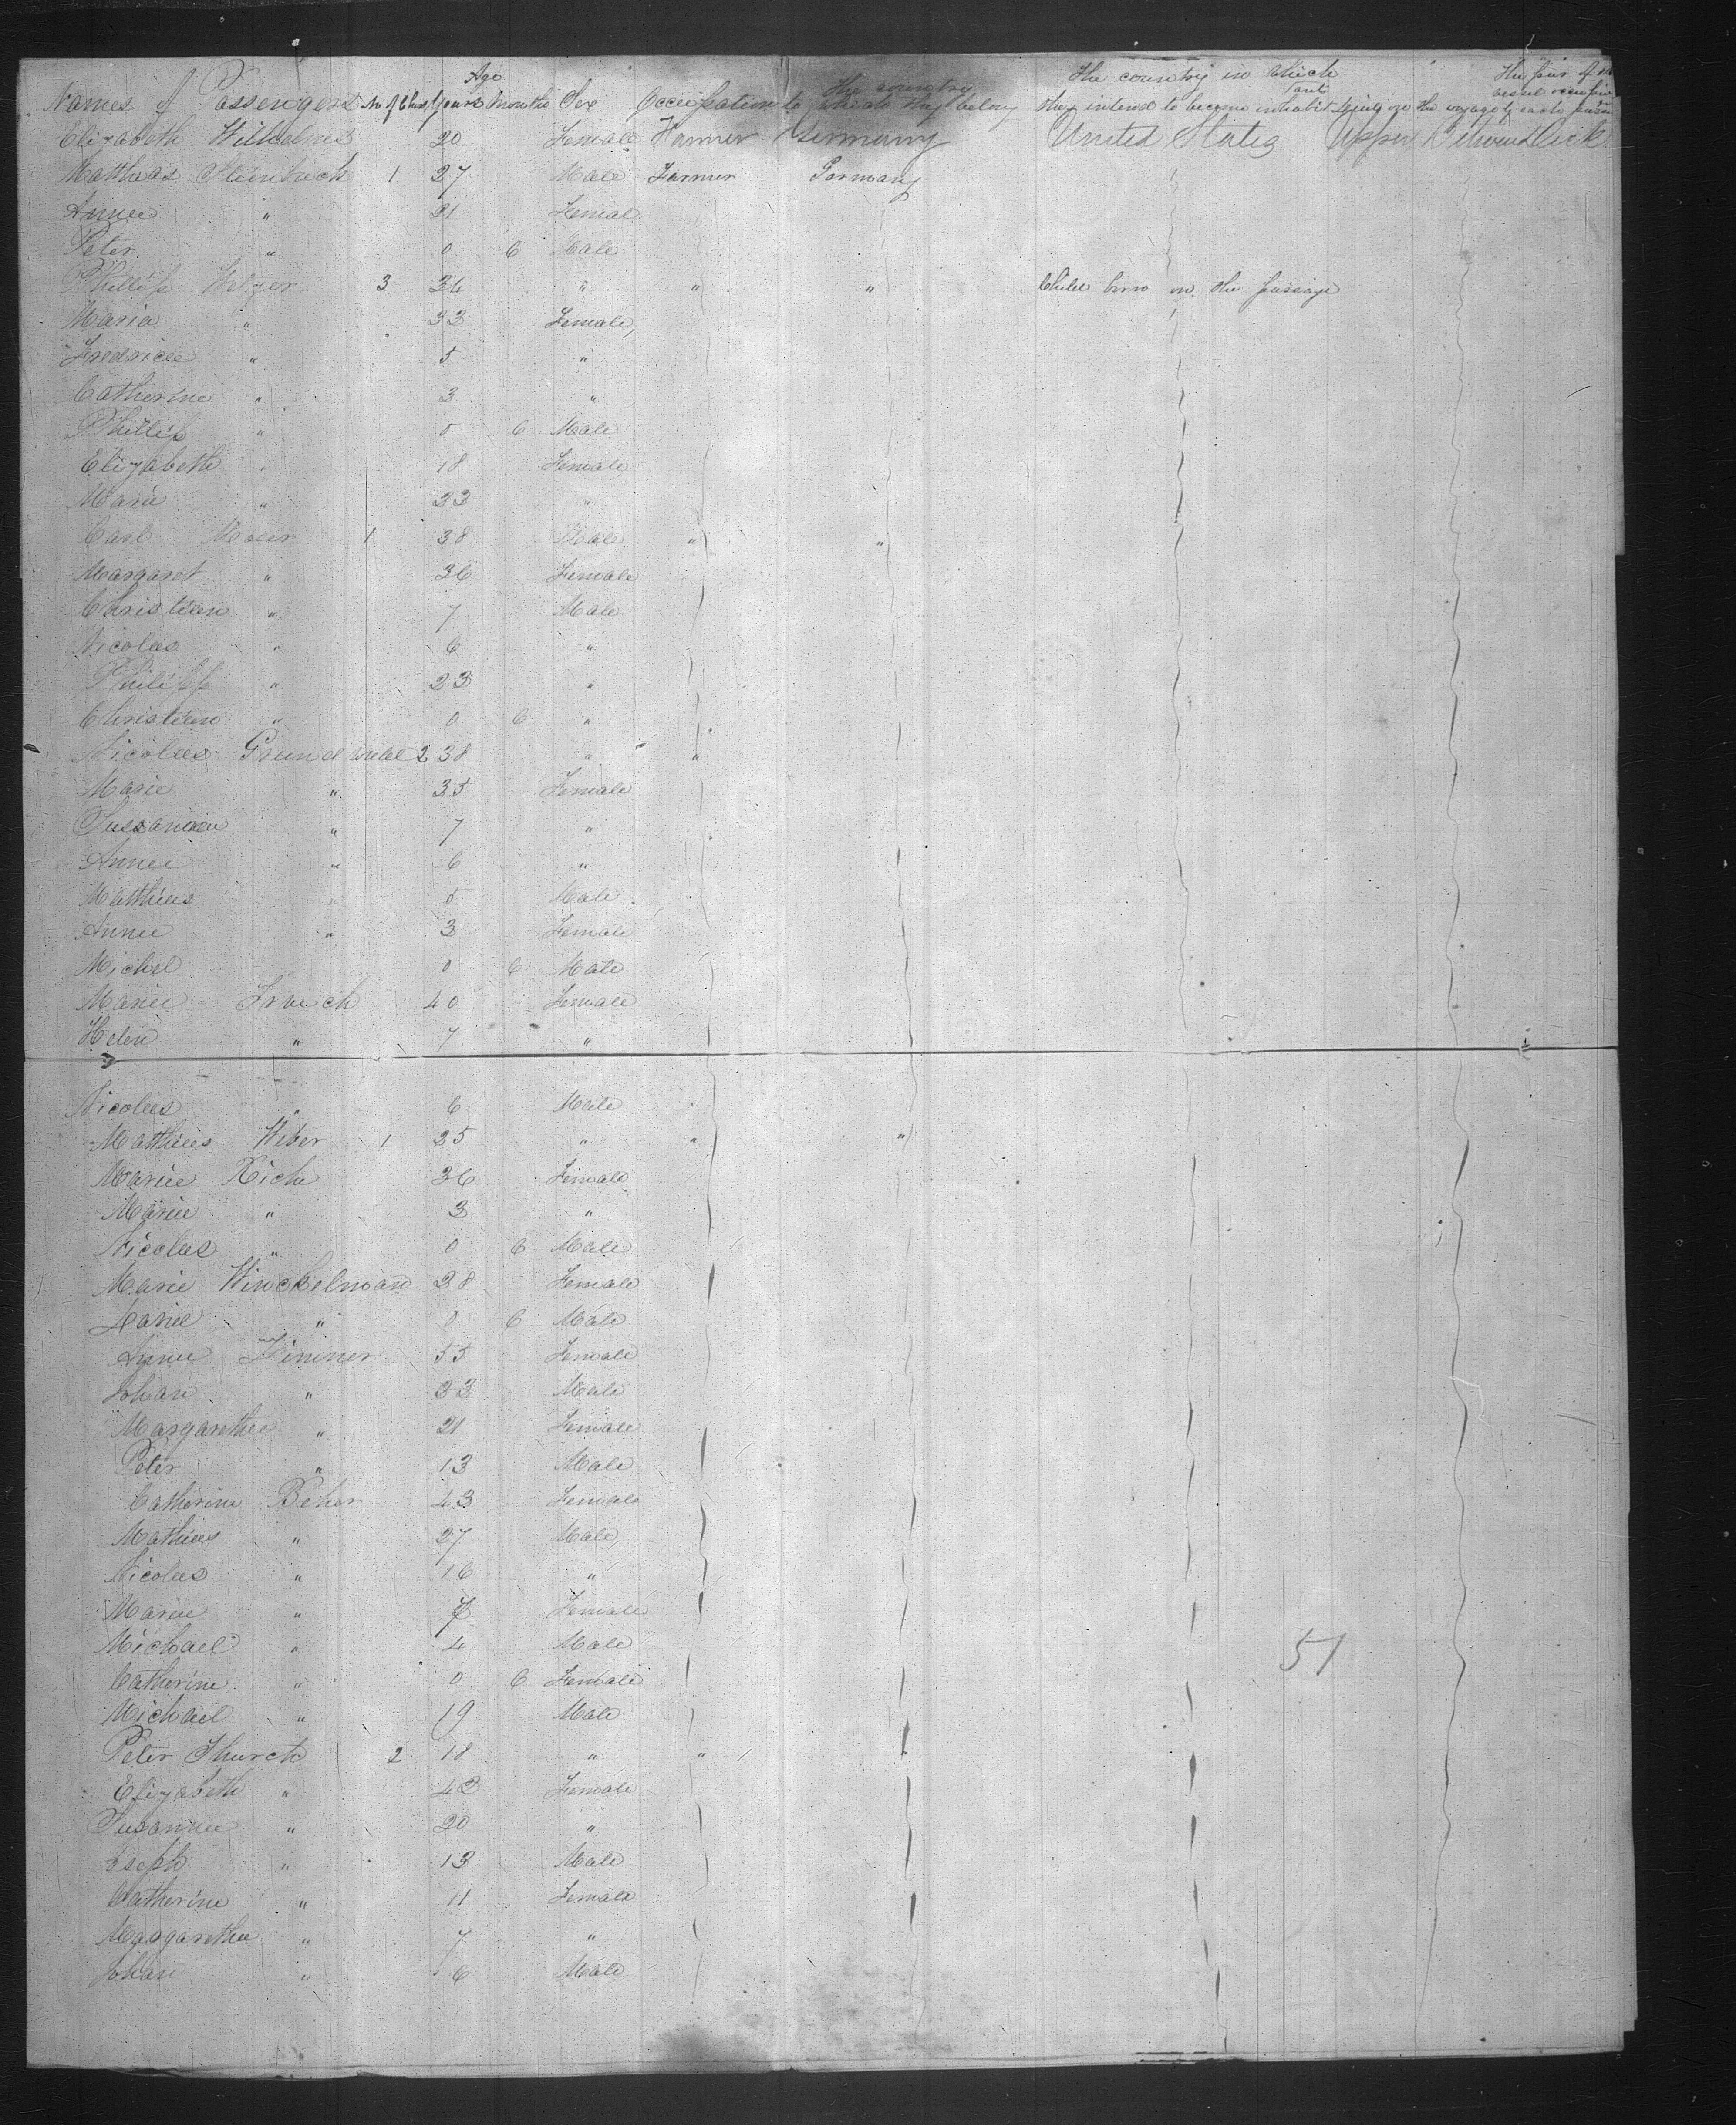 Age The country The country in which The part of the
Names of Passengers No of Chest Years Months Sex Occupation to which they belong they intend to become inhabitants on the voyage of each
Elizabeth Wilhelms 20 Female Farmer Germany United States Upper Between Deck
Matthias Steinbach 1 27 Male Farmer Germany
Annee " 21 Female
Peter " 0 6 Male
Phillip Wetzer 3 34 " " " Child born on the passage
Maria " 33 Female
Fredricee " 5 "
Catherine " 3 "
Phillip " 0 6 Male
Elizabeth " 18 Female
Marie " 23 "
Carl Maier 1 38 Male " "
Margaret " 36 Female
Christian " 7 Male
Nicolas " 6 "
Philipp " 23 "
Christian " 0 6 "
Nicolas 2 38 " "
Marie " 35 Female
Sussannee " 7 "
Annee " 6 "
Matthias " 5 Male
Annee " 3 Female
Michel 0 6 Male
Mariee 40 Female
Helen " 7 "
Nicolas " 6 Male
Mathias Weber 1 25 " " "
Mariee Riche 36 Female
Mariee " 3 "
Nicolas " 0 6 Male
Marie Winckelman 38 Female
" 0 6 Male
Annee Zimmer 55 Female
Johan " 23 Male
Margarethee " 21 Female
Peter " 13 Male
Catherine Beher 43 Female
Mathias " 27 Male
Nicolas " 16 "
Mariee " 7 Female
Michael " 4 Male
51
Catherine " 0 6 Female
Michael " 19 Male
Peter 2 18 " "
Elizabeth " 43 Female
Susannee " 20 "
Joseph " 13 Male
Catherine " 11 Female
Margarethee " 7 "
Johan " 6 Male